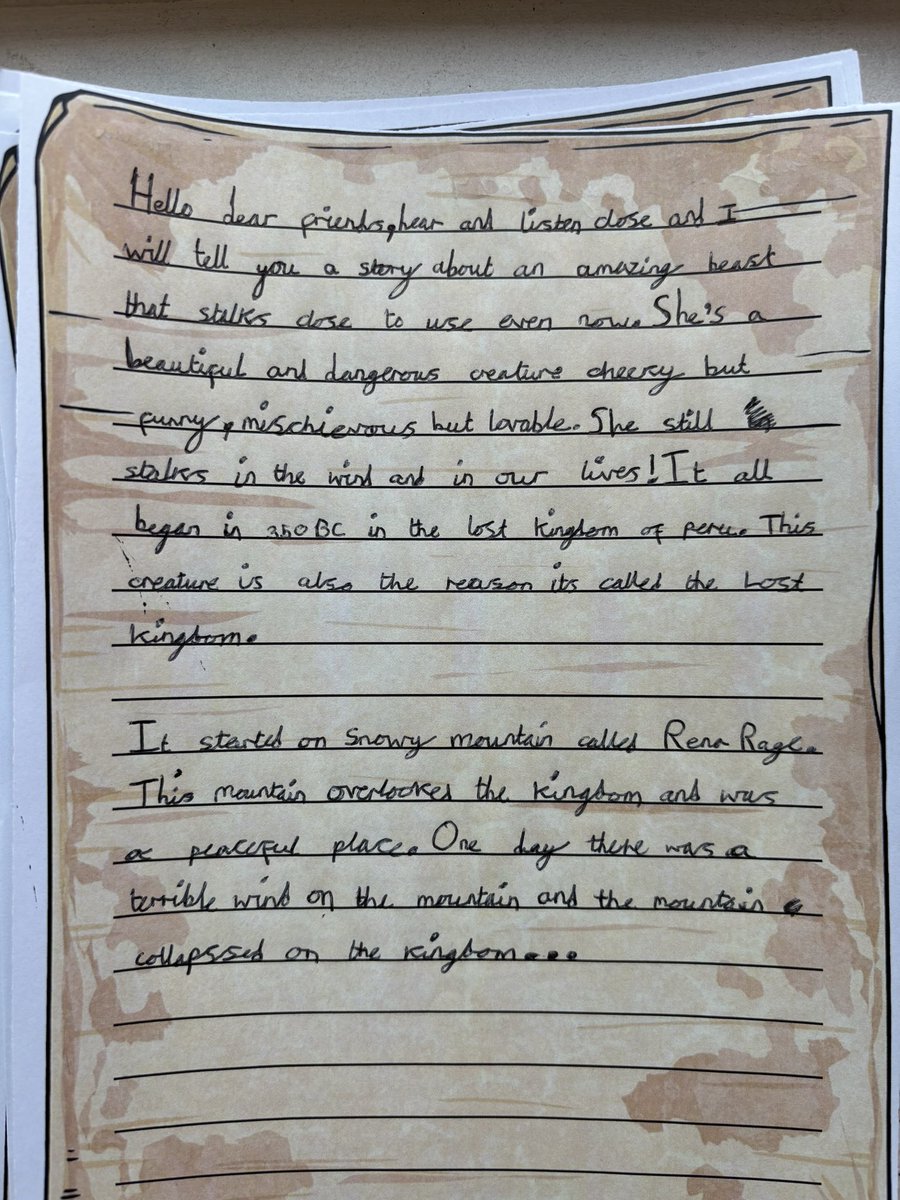 Hello dear friends, hear and listen close and I
will tell you a story about an amazing beast
that stalks close to use even now. She's a
beautiful and dangerous creature cheery but
funny, mischievous but lovable. She still
stalks in the wind and in our lives! It all
began in 350BC in the lost kingdom of peru. This
creature is also the reason its called the Lost
kingdom.
It started on snowy mountain called Rena Rage.
This mountain overlooked the kingdom and was
a peaceful place. One day there was a
terrible wind on the mountain and the mountain
collapssed on the kingdom...